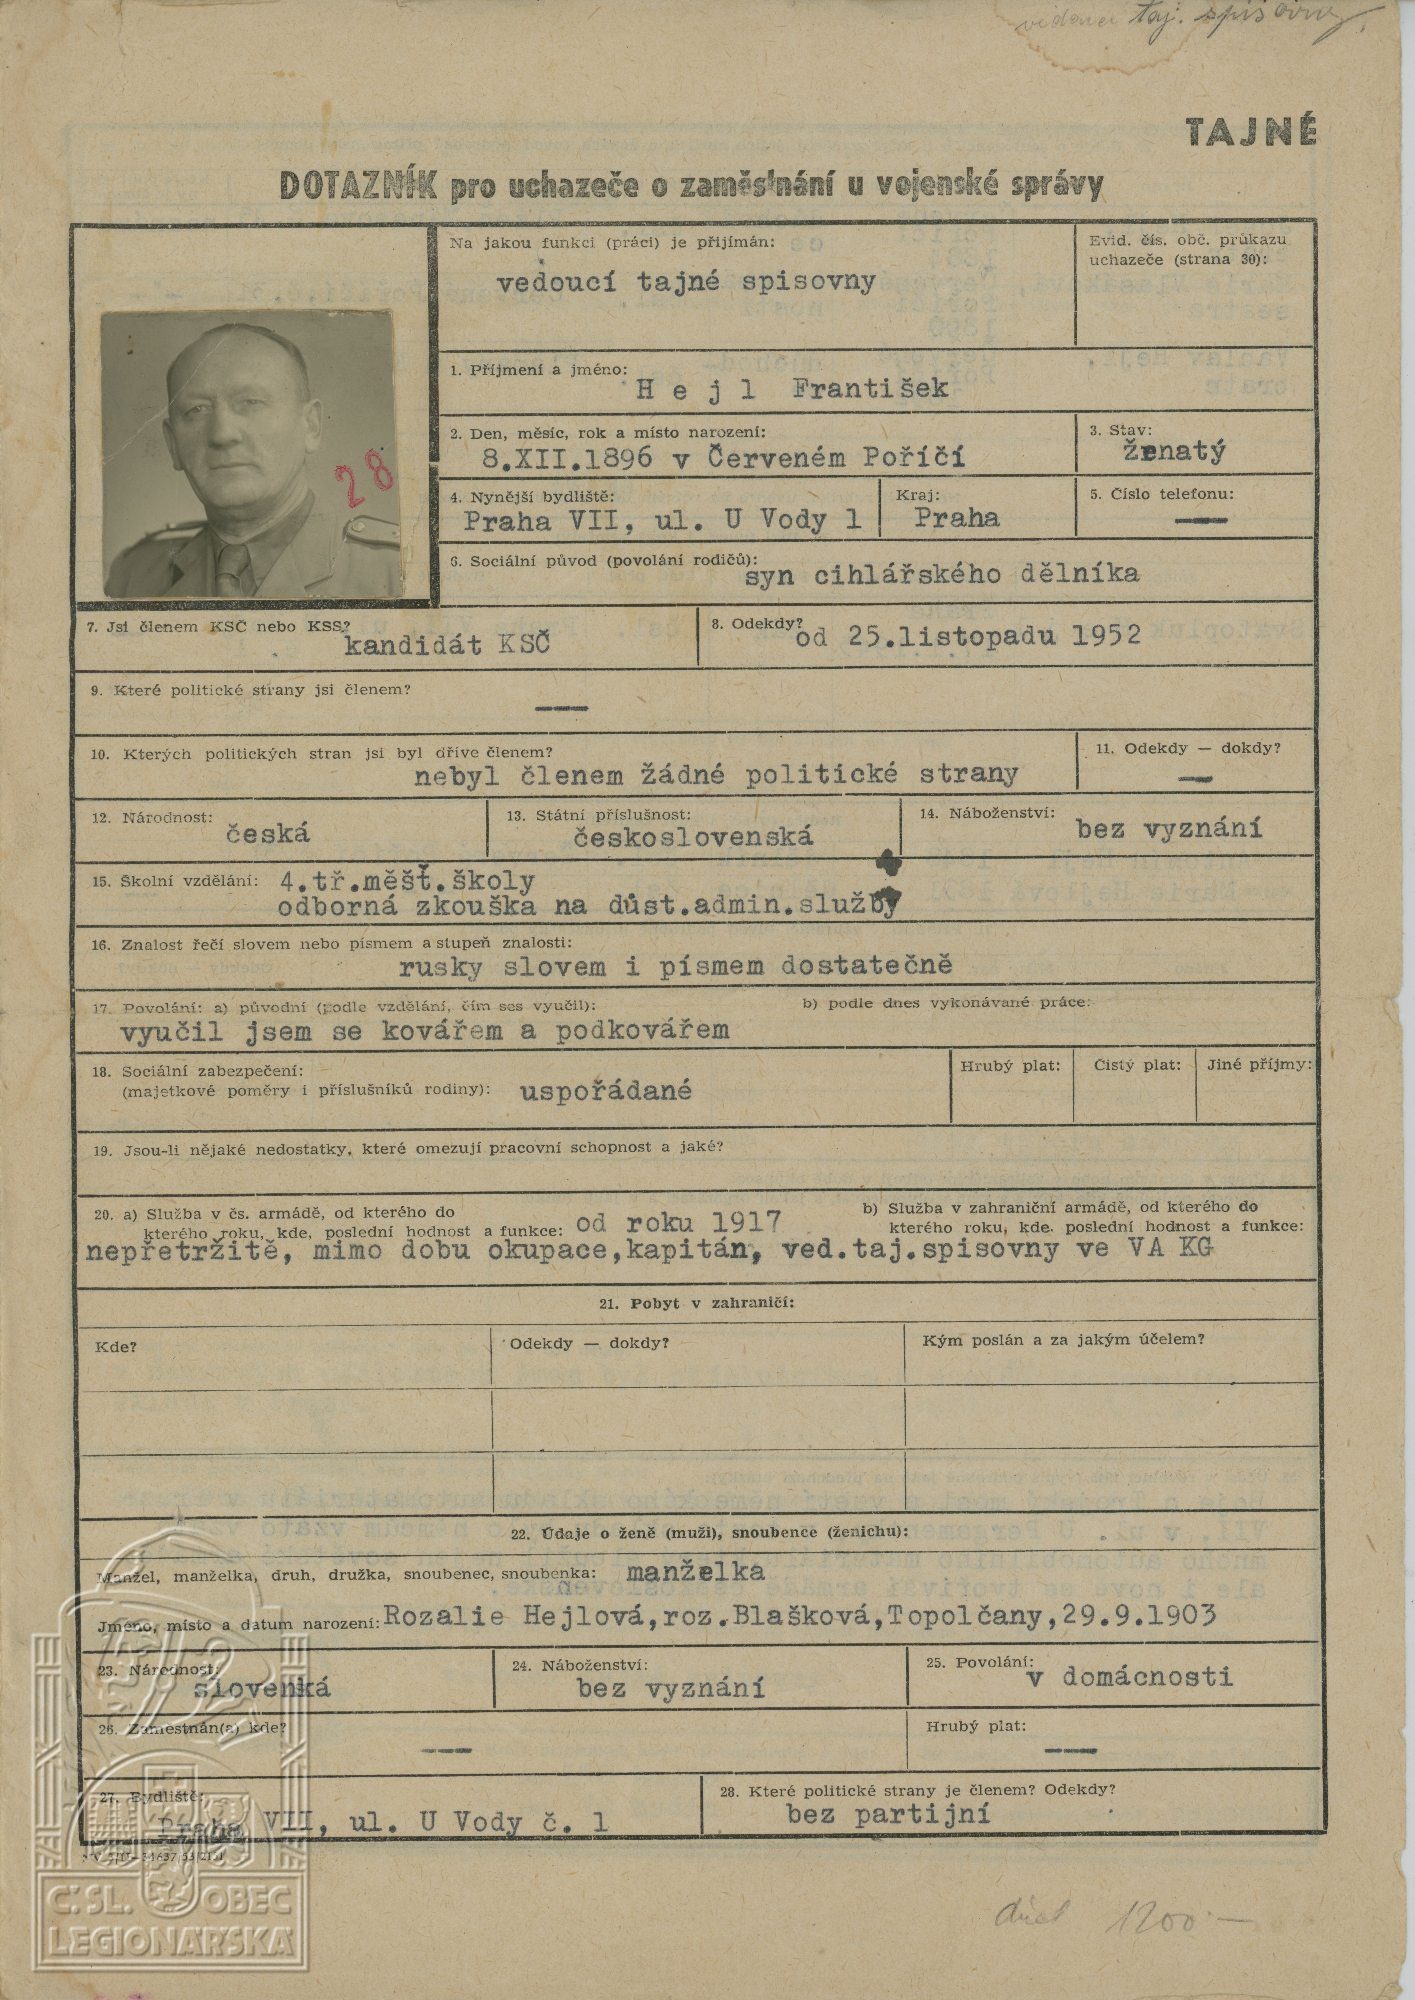 taj. spisovny
TAJNÉ
DOTAZNÍK pro uchazeče o zaměstnání u vojenské správy
Na jakou funkci (práci) je přijímán:
vedoucí tajné spisovny
Evid. čís. obč. průkazu
uchazeče (strana 30):
28
1. Příjmení a jméno:
H e j l František
2. Den, měsíc, rok a místo narození:
8.XII.1896 v Červeném Poříčí
3. Stav:
ženatý
4. Nynější bydliště:
Praha VII, ul. U Vody 1
Kraj:
Praha
5. Číslo telefonu:
—
6. Sociální původ (povolání rodičů):
syn cihlářského dělníka
7. Jsi členem KSČ nebo KSS?
kandidát KSČ
8. Odekdy?
od 25.listopadu 1952
9. Které politické strany jsi členem?
—
10. Kterých politických stran jsi byl dříve členem?
nebyl členem žádné politické strany
11. Odekdy — dokdy?
—
12. Národnost:
česká
13. Státní příslušnost:
československá
14. Náboženství:
bez vyznání
15. Školní vzdělání: 4.tř.měšť.školy
odborná zkouška na důst.admin.služby
16. Znalost řečí slovem nebo písmem a stupeň znalosti:
rusky slovem i písmem dostatečně
17. Povolání: a) původní (podle vzdělání, čím ses vyučil):
b) podle dnes vykonávané práce:
vyučil jsem se kovářem a podkovářem
18. Sociální zabezpečení:
(majetkové poměry i příslušníků rodiny): uspořádané
Hrubý plat:
Čistý plat:
Jiné příjmy:
19. Jsou-li nějaké nedostatky, které omezují pracovní schopnost a jaké?
20. a) Služba v čs. armádě, od kterého do
kterého roku, kde, poslední hodnost a funkce: od roku 1917
b) Služba v zahraniční armádě, od kterého do
kterého roku, kde. poslední hodnost a funkce:
nepřetržitě, mimo dobu okupace,kapitán, ved.taj.spisovny ve VA KG
21. Pobyt v zahraničí:
Kde?
Odekdy — dokdy?
Kým poslán a za jakým účelem?
22. Údaje o ženě (muži), snoubence (ženichu):
Manžel, manželka, druh, družka, snoubenec, snoubenka: manželka
Jméno, místo a datum narození: Rozalie Hejlová,roz.Blašková,Topolčany,29.9.1903
23. Národnost:
slovenká
24. Náboženství:
bez vyznání
25. Povolání:
v domácnosti
26. Zaměstnán(a) kde?
—
Hrubý plat:
—
27. Bydliště:
Praha VII, ul. U Vody č. 1
28. Které politické strany je členem? Odekdy?
bez partijní
Č.SL. OBEC
LEGIONÁŘSKÁ
1200.—